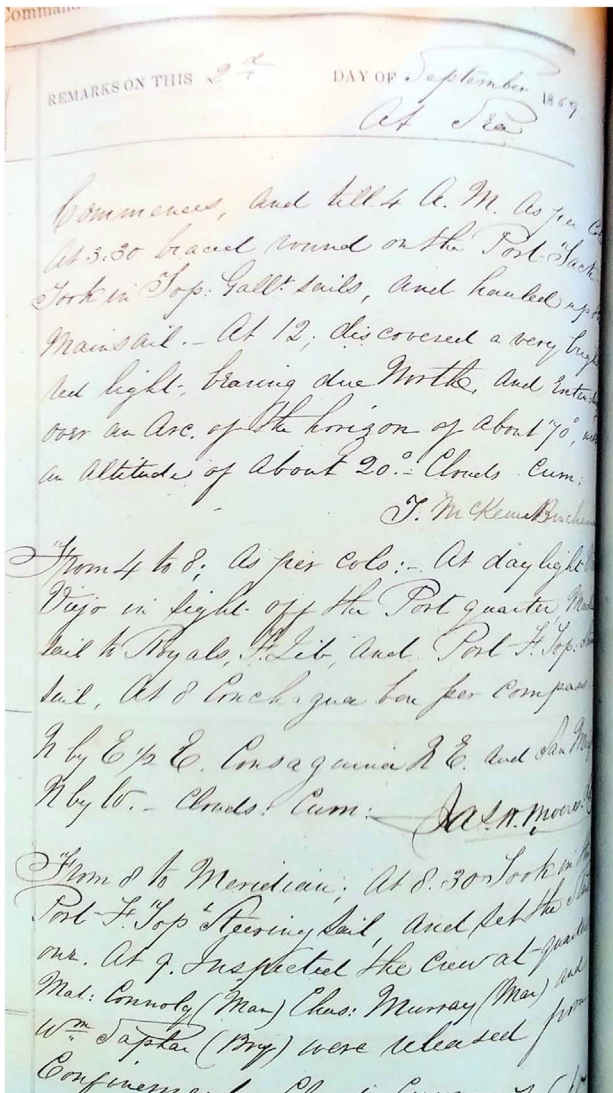 Comman
REMARKS ON THIS 2d DAY OF September 1869
At Sea
Commences, and till 4 A. M. As per
At 3.30 braced round on the Port Tack
Took in Top: Gallt sails, and hauled up
Mainsail. - At 12, discovered a very
red light, bearing due North, and
over an Arc. of the horizon of about 70°,
an altitude of about 20°. - Clouds. Cum:
T. McKean
From 4 to 8; As per cols: - At daylight
Viejo in sight off the Port quarter
sail to Royals, F. Jib, and Port F. Top:
sail, At 8 Conchagua bore per compass
N by E 1/2 E. Consaguina N E. and San
N by W. - Clouds: Cum:
Jas. H. Moore
From 8 to Meridian; At 8.30 Took in
Port F. Top Steering Sail, and set the
one. At 9. Inspected the crew at quarters
Mat: Connoly (Mar) Chas: Murray (Mar) and
Wm (Brig) were released from